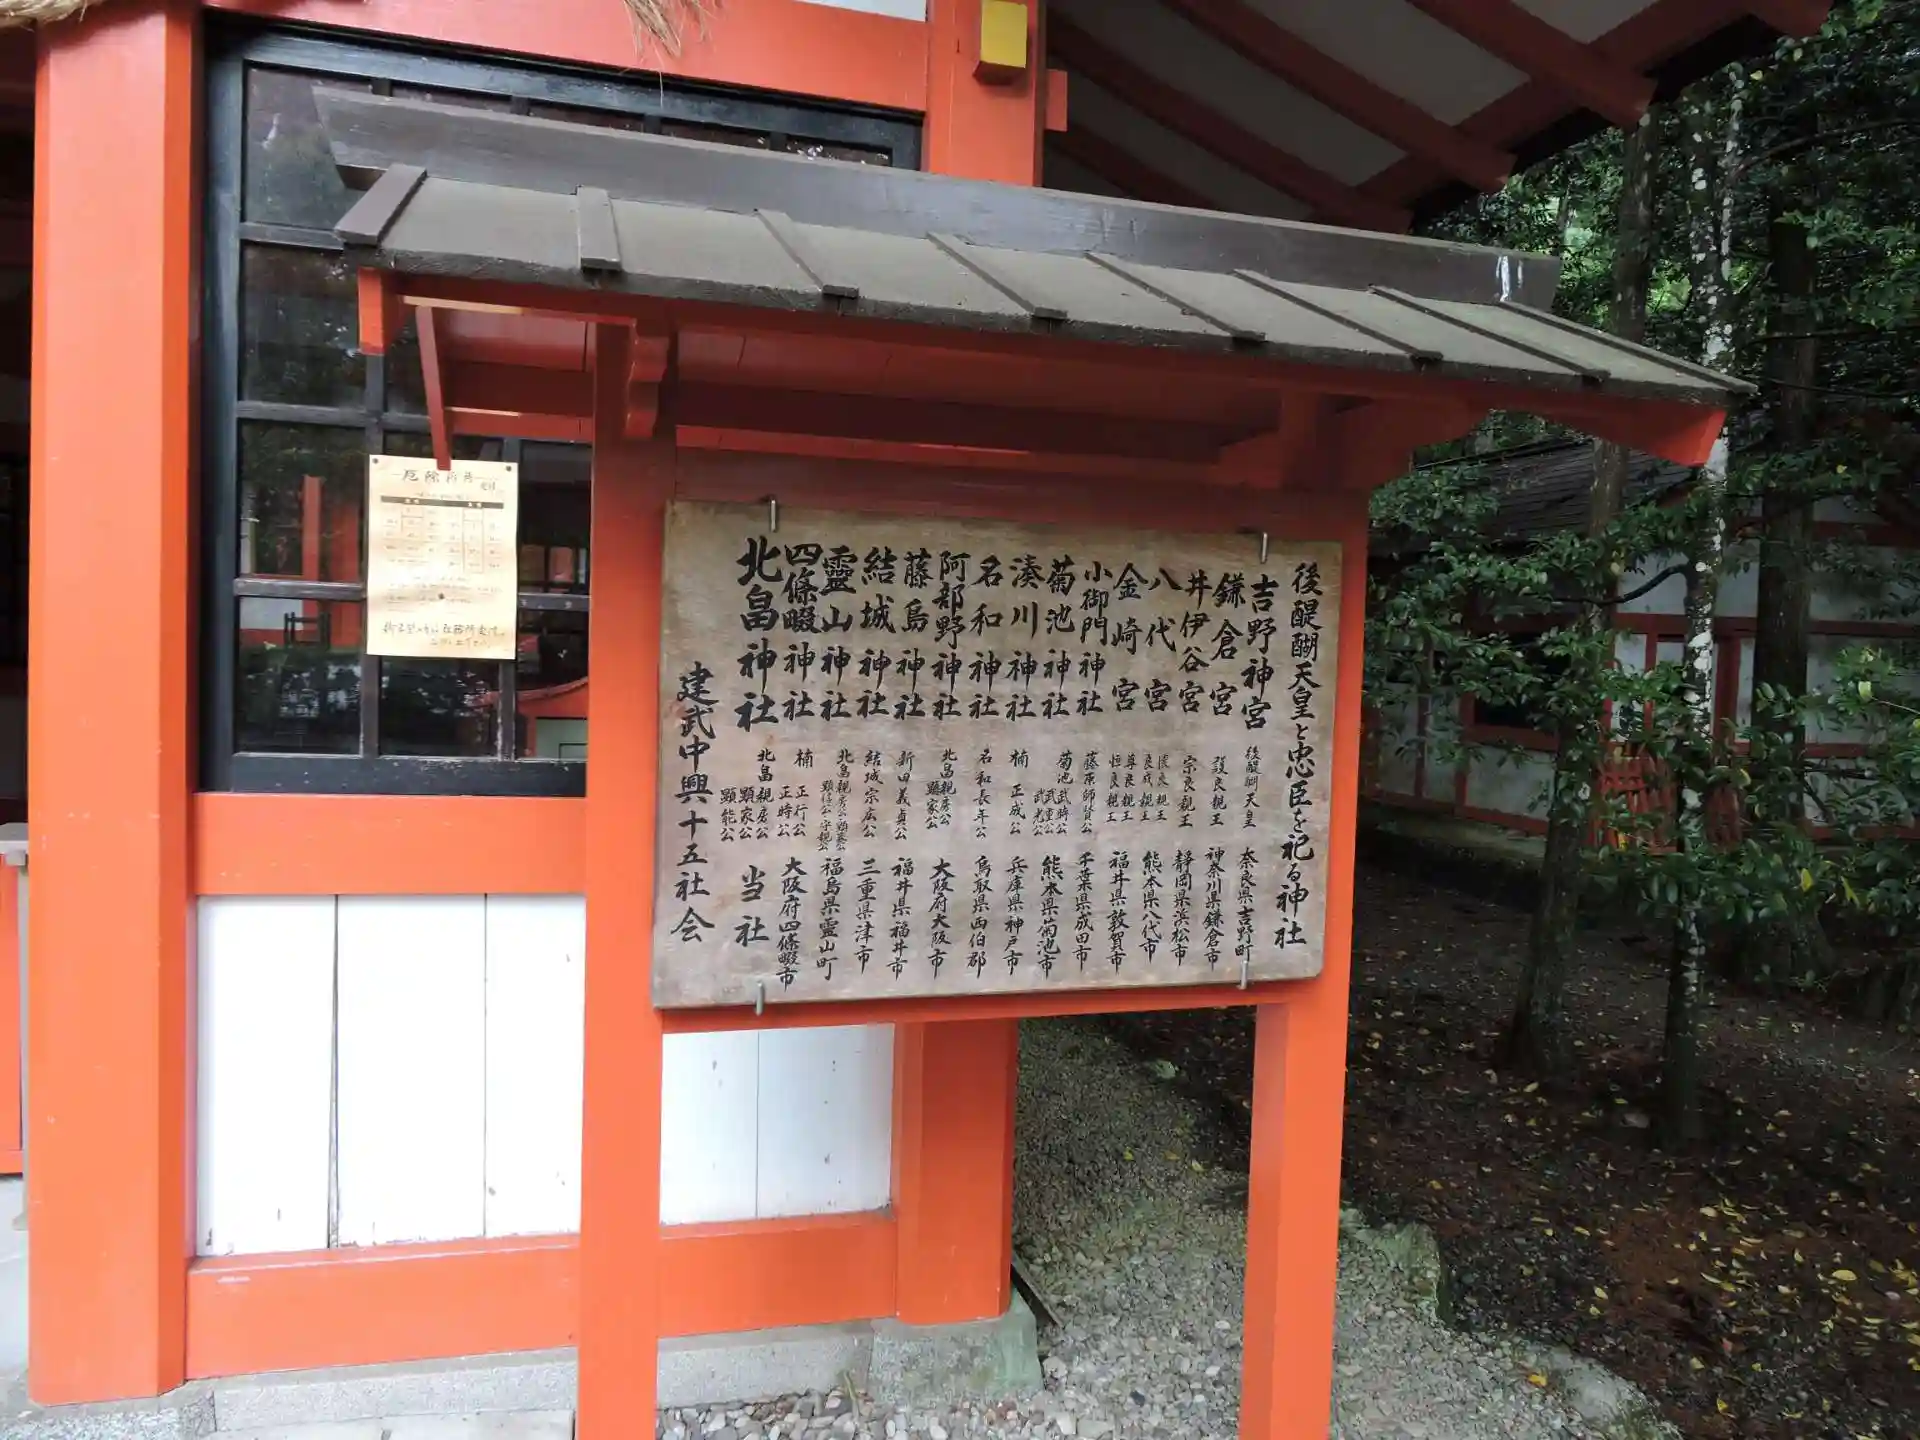 後醍醐天皇と忠臣を祀る神社
吉野神宮 後醍醐天皇 奈良県吉野町
鎌倉宮 護良親王 神奈川県鎌倉市
井伊谷宮 宗良親王 静岡県浜松市
八代宮 懐良親王 良成親王 熊本県八代市
金崎宮 尊良親王 恒良親王 福井県敦賀市
小御門神社 藤原師賢公 千葉県成田市
菊池神社 菊池武時公 武重公 武光公 熊本県菊池市
湊川神社 楠正成公 兵庫県神戸市
名和神社 名和長年公 鳥取県西伯郡
阿部野神社 北畠親房公 顕家公 大阪府大阪市
藤島神社 新田義貞公 福井県福井市
結城神社 結城宗広公 三重県津市
靈山神社 北畠親房公 顕家公 顕信公 守親公 福島県霊山町
四條畷神社 楠正行公 正時公 大阪府四條畷市
北畠神社 北畠親房公 顕家公 顕能公 当社
建武中興十五社会
厄除